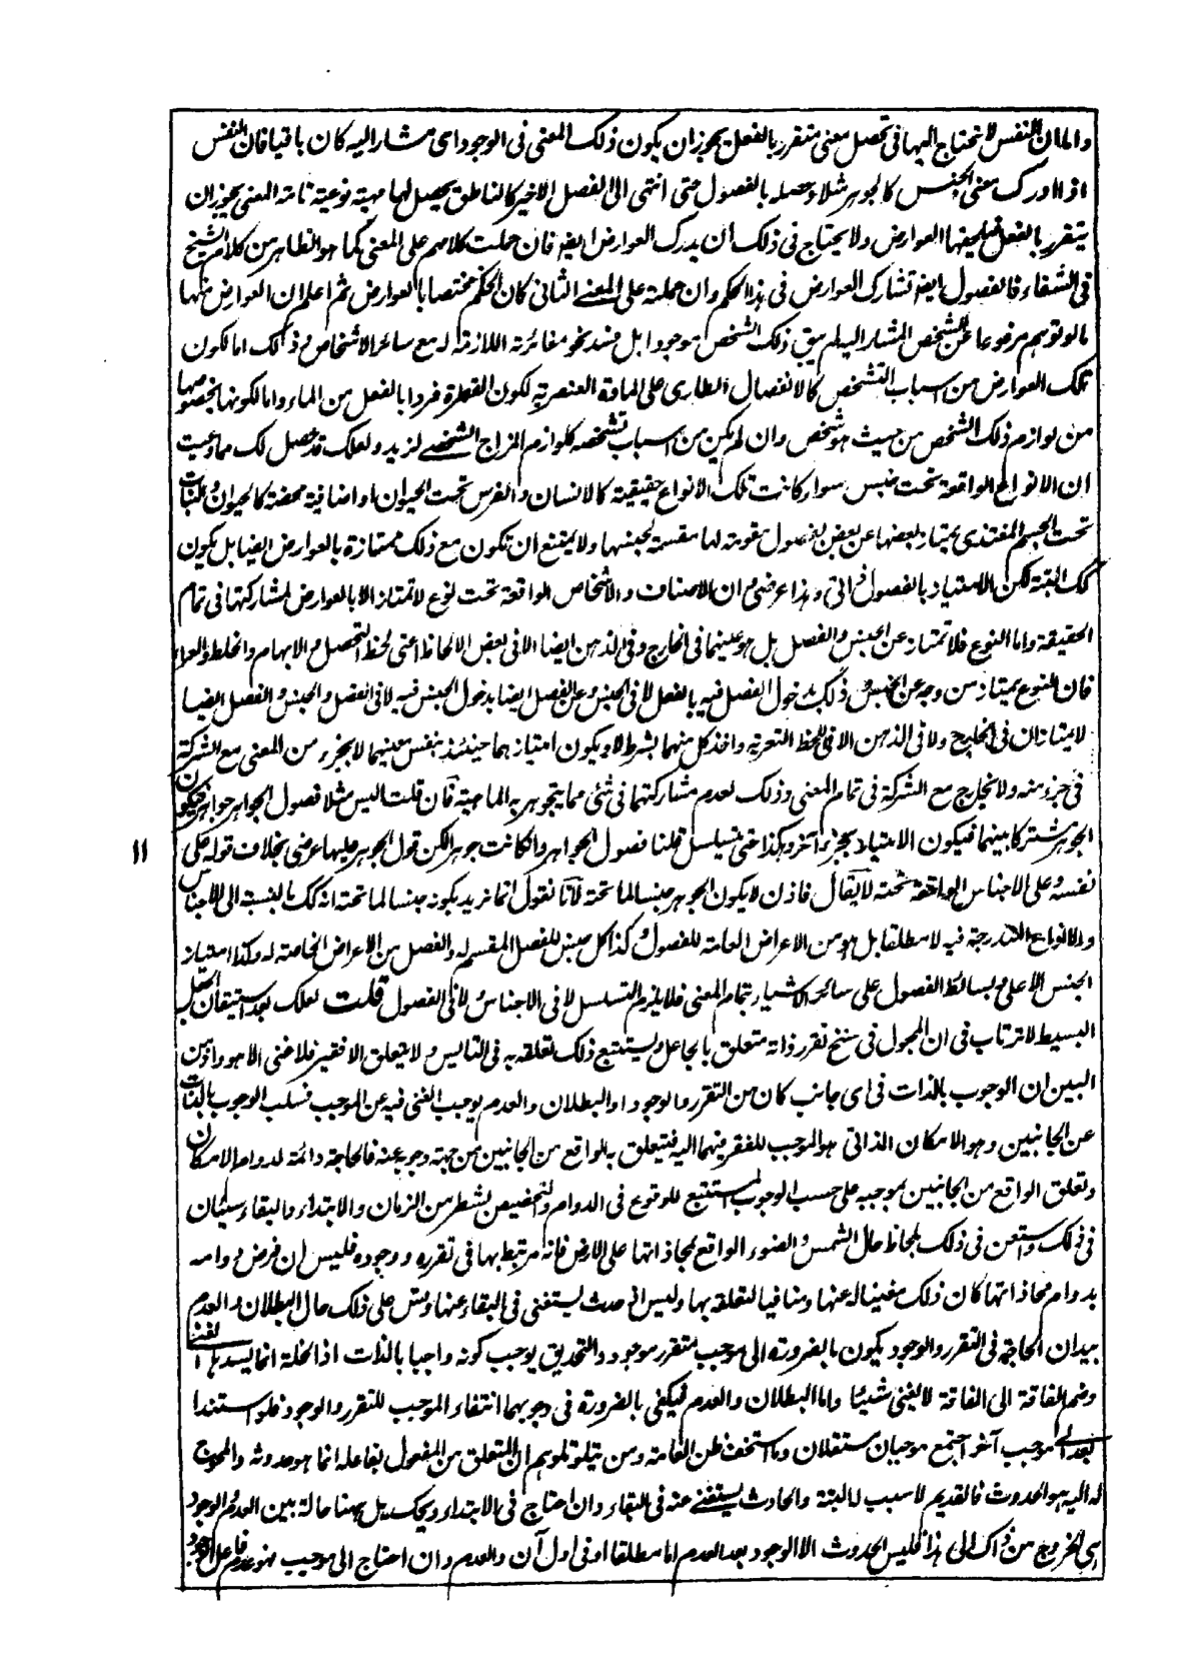 واما ان النفس لا تحتاج اليها فى تحصل معنى متقرر بالفعل يجوز ان يكون ذلك المعنى فى الوجود اى مشار اليه كان باقيا فان النفس
اذا ادرك معنى الجنس كالجوهر مثلا وحصله بالفصول حتى انتهى الى الفصل الاخير كالناطق يحصل لها مهية نوعية تامة المعنى يجوز ان
يتقرر بالفعل فيلحقها العوارض ولا يحتاج فى ذلك ان يدرك العوارض ايضه فان حملت كلامهم على المعنى كما هو الظاهر من كلام الشيخ
فى الشفاء فالفصول ايضه تشارك العوارض فى هذا الحكم وان حملته على المعنى الثانى كان الحكم مختصا بالعوارض ثم اعلم ان العوارض منها
ما لو توهم مرفوعا عن الشخص المشار اليه لم يبق ذلك الشخص موجودا بل فسد نحو مغائرته اللازمة له مع سائر الاشخاص وذلك اما لكون
تلك العوارض من اسباب التشخص كالانفصال الطارى على المادة العنصرية لكون القطرة فردا بالفعل من الماء واما لكونها بخصوصها
من لوازم ذلك الشخص من حيث هو شخص وان لم يكن من اسباب تشخصه كلوازم المزاج الشخصى لزيد ولعلك قد حصل لك مما وعيت
ان الانواع الواقعة تحت جنس سواء كانت تلك الانواع حقيقية كالانسان والفرس تحت الحيوان او اضافية محضة كالحيوان والنبات
تحت الجسم المغتذى يمتاز بعضها عن بعض بفصول مقومة لها مقسمة لجنسها ولا يمتنع ان تكون مع ذلك ممتازة بالعوارض ايضا بل يكون
كك البتة لكن الامتياز بالفصول ذاتى وهذا عرضى وان الاصناف والاشخاص الواقعة تحت نوع لا تمتاز الا بالعوارض لمشاركتها فى تمام
الحقيقة واما النوع فلا تمتاز عن الجنس والفصل بل هو عينهما فى الخارج وفى الذهن ايضا الا فى بعض الالحاظ اعنى لحظ التحصل والابهام والخلط والعراء
فان النوع يمتاز من وجه عن الجنس وذلك بدخول الفصل فيه بالفعل لا فى الجنس وعن الفصل ايضا بدخول الجنس فيه لا فى الفصل والجنس والفصل ايضا
لا يمتازان فى الخارج ولا فى الذهن الا فى اللحظ التعرية واخذ كل منهما بشرط لا ويكون امتيازهما حينئذ بنفس معنييهما لا بجزء من المعنى مع الشركة
فى جزء منه ولا بخارج مع الشركة فى تمام المعنى وذلك لعدم مشاركتهما فى شئ مما يتجوهر به الماهية فان قلت اليس مثلا فصول الجواهر جواهر فيكون
الجوهر مشتركا بينهما فيكون الامتياز بجزء آخر وهكذا حتى يتسلسل قلنا فصول الجواهر وان كانت جوهرا لكن قول الجوهر عليها عرضى بخلاف قوله على
نفسه وعلى الاجناس الواقعة تحته لا يقال فاذن لا يكون الجوهر جنسا لما تحته لانا نقول انما نريد بكونه جنسا لما تحته انه كك بالنسبة الى الاجناس
والانواع المندرجة فيه لا مطلقا بل هو من الاعراض العامة للفصول وكذا كل جنس للفصل المقسم له والفصل من الاعراض الخاصة له وكذا امتياز
الجنس الاعلى وبسائط الفصول على سائر الاشياء بتمام المعنى فلا يلزم التسلسل لا فى الاجناس ولا فى الفصول قلت لعلك بعد استيقان الجعل
البسيط لا ترتاب فى ان المجعول فى سنخ تقرر ذاته متعلق بالجاعل ويستتبع ذلك تعلقه به فى التأيس ولا يتعلق الا فقير فلا غنى الا هو واذ من
البين ان الوجوب بالذات فى اى جانب كان من التقرر والوجود او البطلان والعدم يوجب الغنى فيه عن الموجب فسلب الوجوب بالذات
عن الجانبين وهو الامكان الذاتى هو الموجب للفقر فيهما اليه فيتعلق بالواقع من الجانبين من جهة وجوبه عنه فالحاجة دائمة لدوام الامكان
وتعلق الواقع من الجانبين بموجبه على حسب الوجوب المستتبع للوقوع فى الدوام والتخصيص بشطر من الزمان والابتداء والبقاء سيان
فى ذلك واستعن فى ذلك بلحاظ حال الشمس والضوء الواقع بمحاذاتها على الارض فانه مرتبط بها فى تقرره ووجوده فليس ان فرض دوامه
بدوام محاذاتها كان ذلك مغنيا له عنها ومنافيا لتعلقه بها وليس اذا حدث يستغنى فى البقاء عنها وقس على ذلك حال البطلان والعدم
بيد ان الحاجة فى التقرر والوجود يكون بالضرورة الى موجب متقرر موجود والتحديق يوجب كونه واجبا بالذات اذ الخلة انما يسدها الغنى
وضم الفاقة الى الفاقة لا يغنى شيئا واما البطلان والعدم فيكفى بالضرورة فى وجوبهما انتفاء الموجب للتقرر والوجود فلو استندا
بعد الى موجب آخر اجتمع موجبان مستقلان وما استخف ظن العامة ومن يتلو تلوهم ان المتعلق من المفعول بفاعله انما هو حدوثه والمحوج
له اليه هو الحدوث فالقديم لا سبب له البتة والحادث يستغنى عنه فى البقاء وان احتاج فى الابتداء ويحك هل ههنا حالة بين العدم والوجود
هى الخروج من ذاك الى هذا فليس الحدوث الا الوجود بعد العدم اما مطلقا او فى اول آن والعدم وان احتاج الى موجب فهو عدم فاعل الوجود
١١